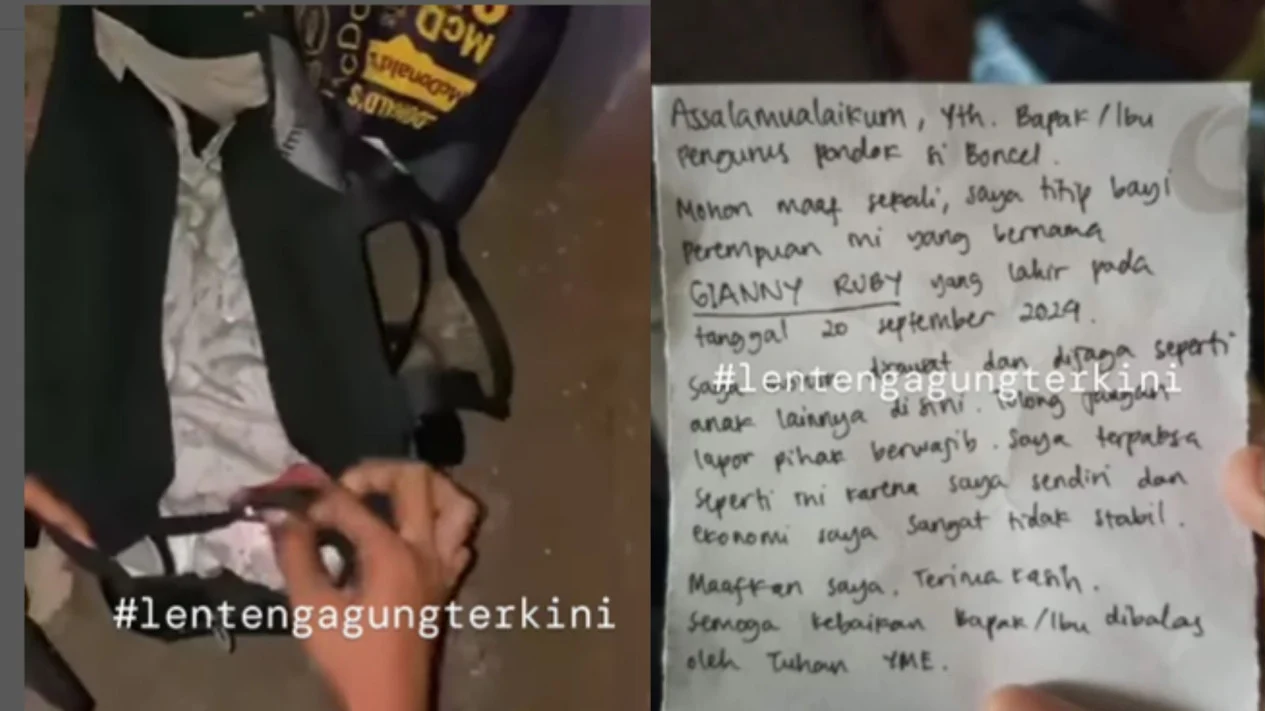 McD
McDonald's
DONALD'S
#lentengagungterkini
Assalamualaikum, Yth. Bapak/Ibu
pengurus pondok si Boncel.
Mohon maaf sekali, saya titip bayi
perempuan ini yang bernama
GIANNY RUBY yang lahir pada
tanggal 20 september 2024.
Saya dirawat dan dijaga seperti
#lentengagungterkini
anak lainnya disini. Tolong jangan
lapor pihak berwajib. Saya terpaksa
seperti ini karena saya sendiri dan
ekonomi saya sangat tidak stabil.
Maafkan saya. Terima kasih.
semoga kebaikan Bapak/Ibu dibalas
oleh Tuhan YME.